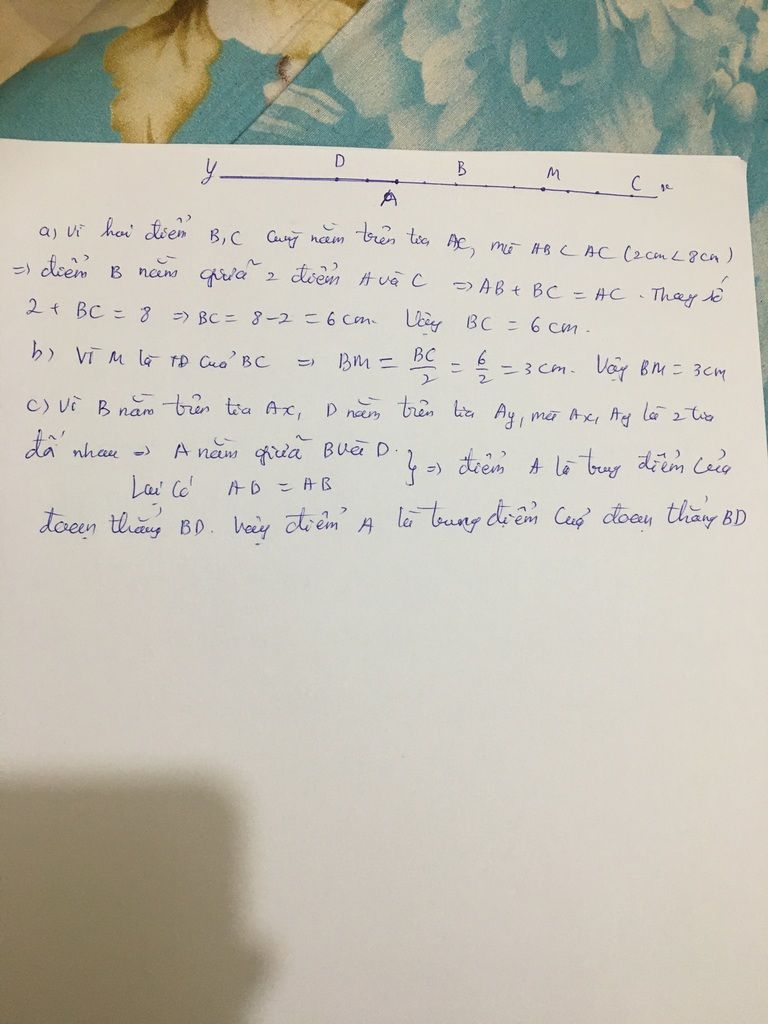 y D A B M C x
a) Vì hai điểm B, C cùng nằm trên tia Ax, mà AB < AC (2cm < 8cm)
=> điểm B nằm giữa 2 điểm A và C => AB + BC = AC. Thay số
2 + BC = 8 => BC = 8 - 2 = 6 cm. Vậy BC = 6 cm.
b) Vì M là TĐ của BC => BM = BC/2 = 6/2 = 3 cm. Vậy BM = 3cm
c) Vì B nằm trên tia Ax, D nằm trên tia Ay, mà Ax, Ay là 2 tia
đối nhau => A nằm giữa B và D. } => điểm A là trung điểm của
Lại có AD = AB
đoạn thẳng BD. Vậy điểm A là trung điểm của đoạn thẳng BD